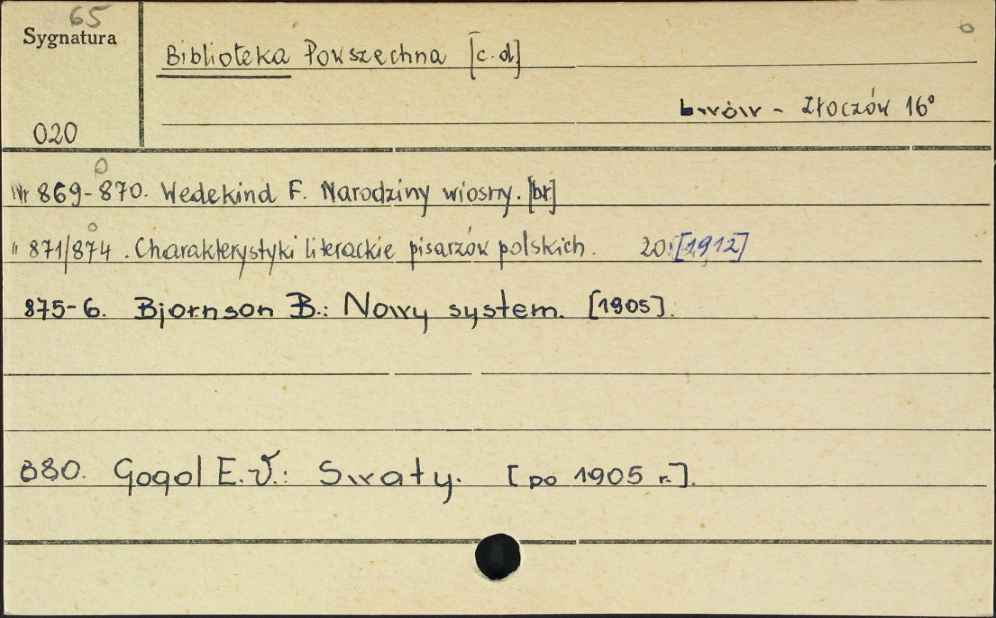 65
Sygnatura
Biblioteka Powszechna [c.d]
Lwów - Złoczów 16°
020
Nr 869-870. Wedekind F. Narodziny wiosny. [br]
" 871/874. Charakterystyki literackie pisarzów polskich. 20. [1912]
875-6. Bjornson B.: Nowy system. [1905].
880. Gogol E.V.: Swaty. [po 1905 r.].